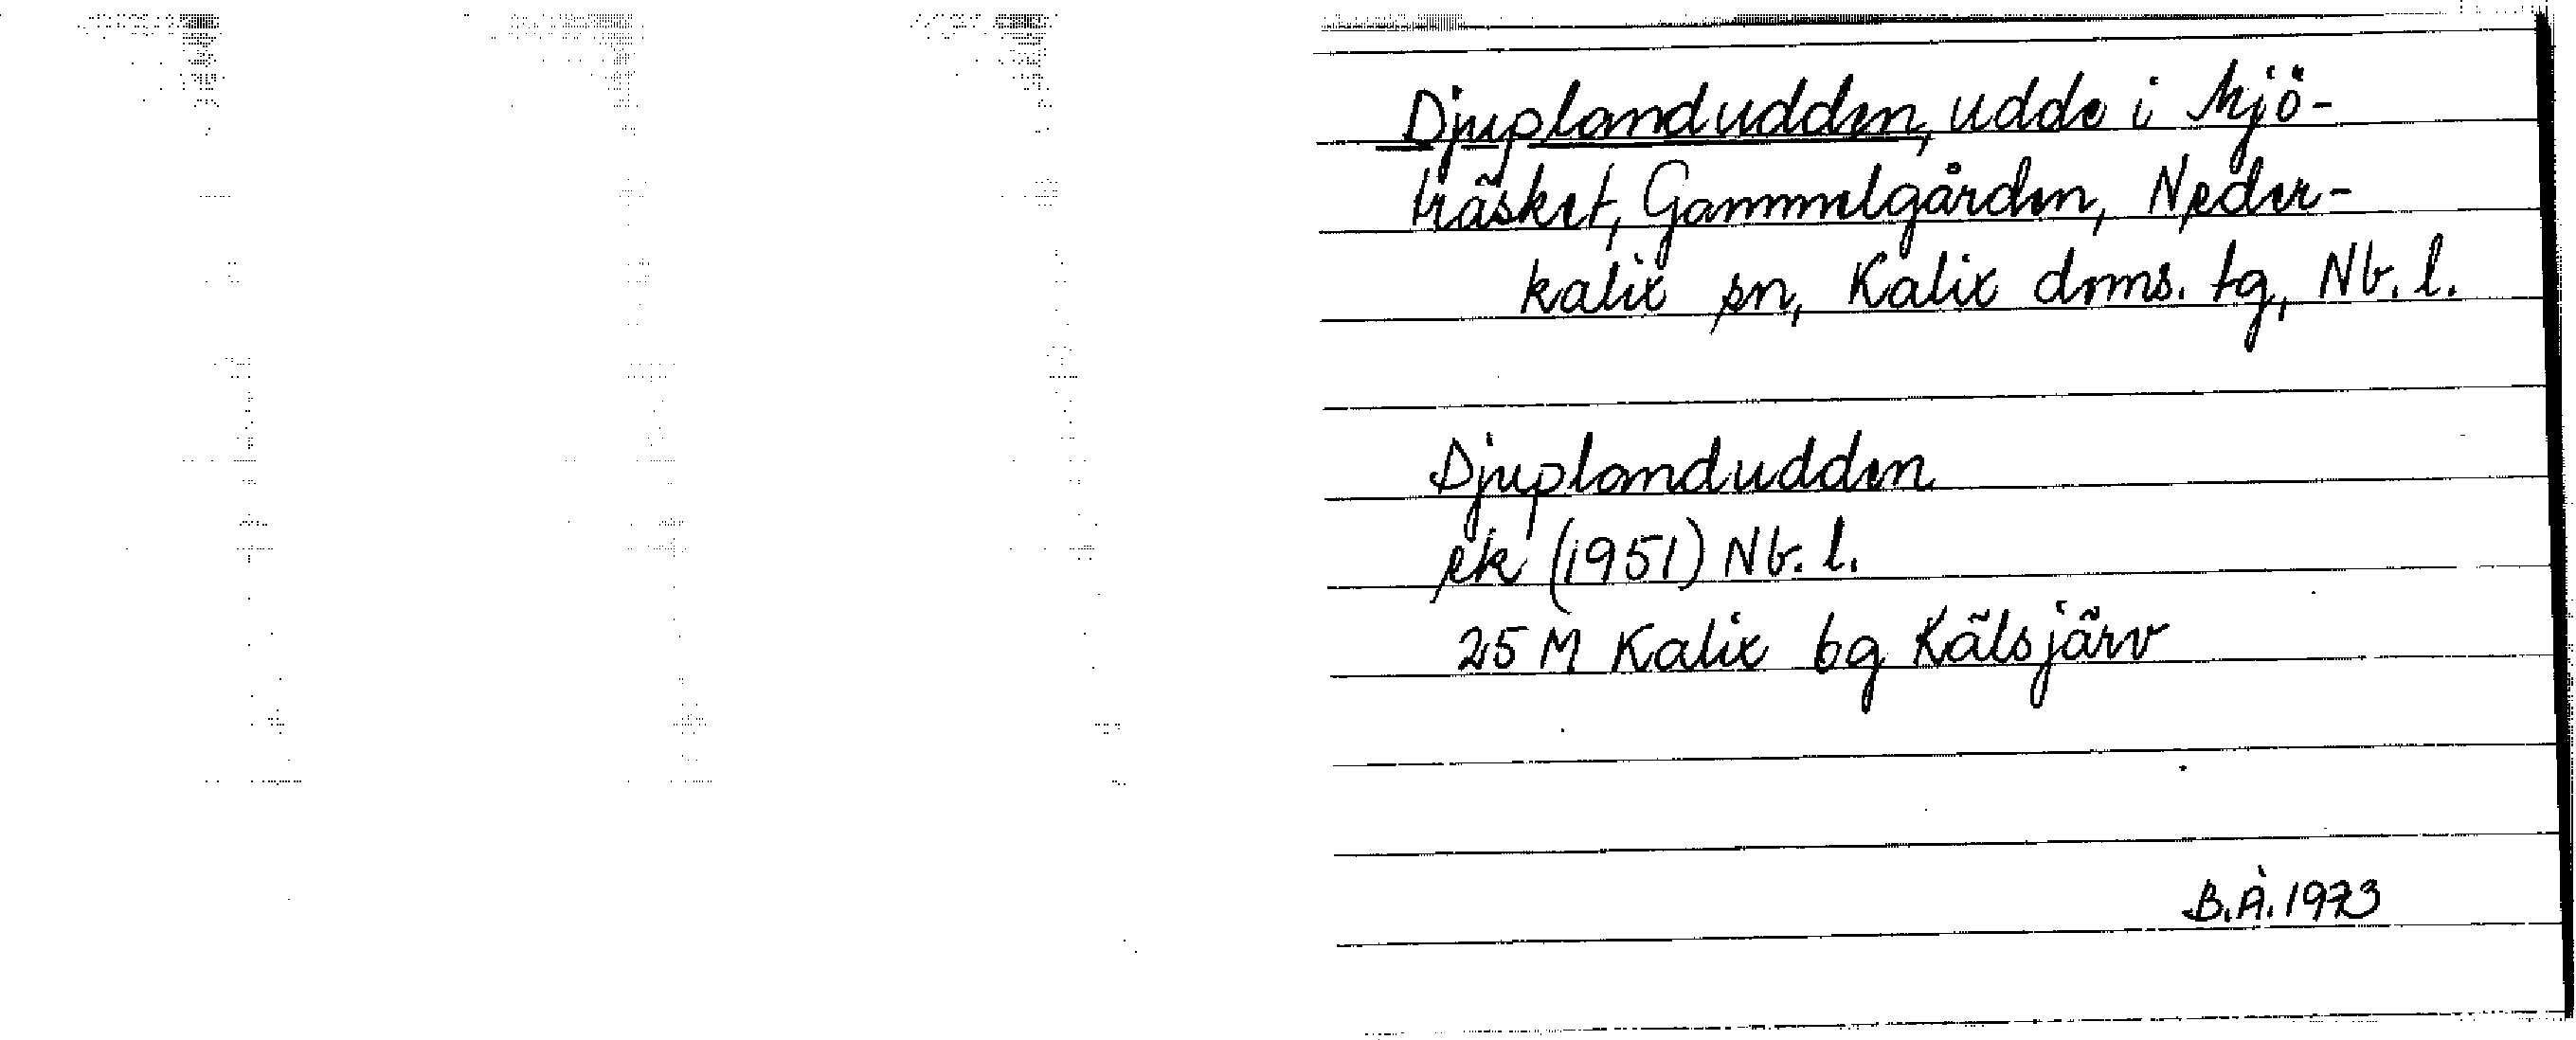 Djuplandudden, udde i Mjö-
träsket, Gammelgården, Neder-
kalix sn, Kalix doms. tg, Nb. l.
Djuplandudden
ek (1951) Nb. l.
25 M Kalix bg Kälsjärv
B.Å. 1973